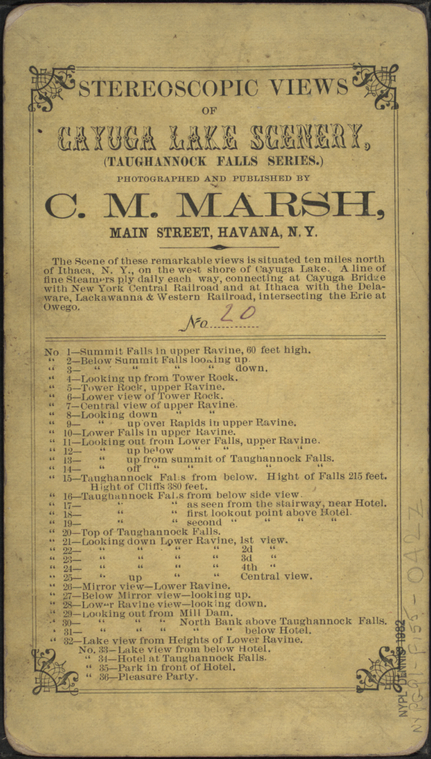 STEREOSCOPIC VIEWS
OF
CAYUGA LAKE SCENERY,
(TAUGHANNOCK FALLS SERIES.)
PHOTOGRAPHED AND PUBLISHED BY
C. M. MARSH,
MAIN STREET, HAVANA, N. Y.
The Scene of these remarkable views is situated ten miles north
of Ithaca, N. Y., on the west shore of Cayuga Lake. A line of
fine Steamers ply daily each way, connecting at Cayuga Bridge
with New York Central Railroad and at Ithaca with the Dela-
ware, Lackawanna & Western Railroad, intersecting the Erie at
Owego.
No. 20
No 1—Summit Falls in upper Ravine, 60 feet high.
" 2—Below Summit Falls looking up.
" 3— " " " " down.
" 4—Looking up from Tower Rock.
" 5—Tower Rock, upper Ravine.
" 6—Lower view of Tower Rock.
" 7—Central view of upper Ravine.
" 8—Looking down " "
" 9— " up over Rapids in upper Ravine.
" 10—Lower Falls in upper Ravine.
" 11—Looking out from Lower Falls, upper Ravine.
" 12— " up below " " " "
" 13— " up from summit of Taughannock Falls.
" 14— " off " " " "
" 15—Taughannock Falls from below. Hight of Falls 215 feet.
Hight of Cliffs 380 feet.
" 16—Taughannock Falls from below side view
" 17— " " as seen from the stairway, near Hotel.
" 18— " " first lookout point above Hotel
" 19— " " second " " " "
" 20—Top of Taughannock Falls.
" 21—Looking down Lower Ravine, 1st view.
" 22— " " " " 2d "
" 23— " " " " 3d "
" 24— " " " " 4th "
" 25— " up " " Central view.
" 26—Mirror view—Lower Ravine.
" 27—Below Mirror view—looking up.
" 28—Lower Ravine view—looking down.
" 29—Looking out from Mill Dam.
" 30— " " " " North Bank above Taughannock Falls.
" 31— " " " " " below Hotel.
" 32—Lake view from Heights of Lower Ravine.
No. 33—Lake view from below Hotel.
" 34—Hotel at Taughannock Falls.
" 35—Park in front of Hotel.
" 36—Pleasure Party.
NYPL DENNIS 1982